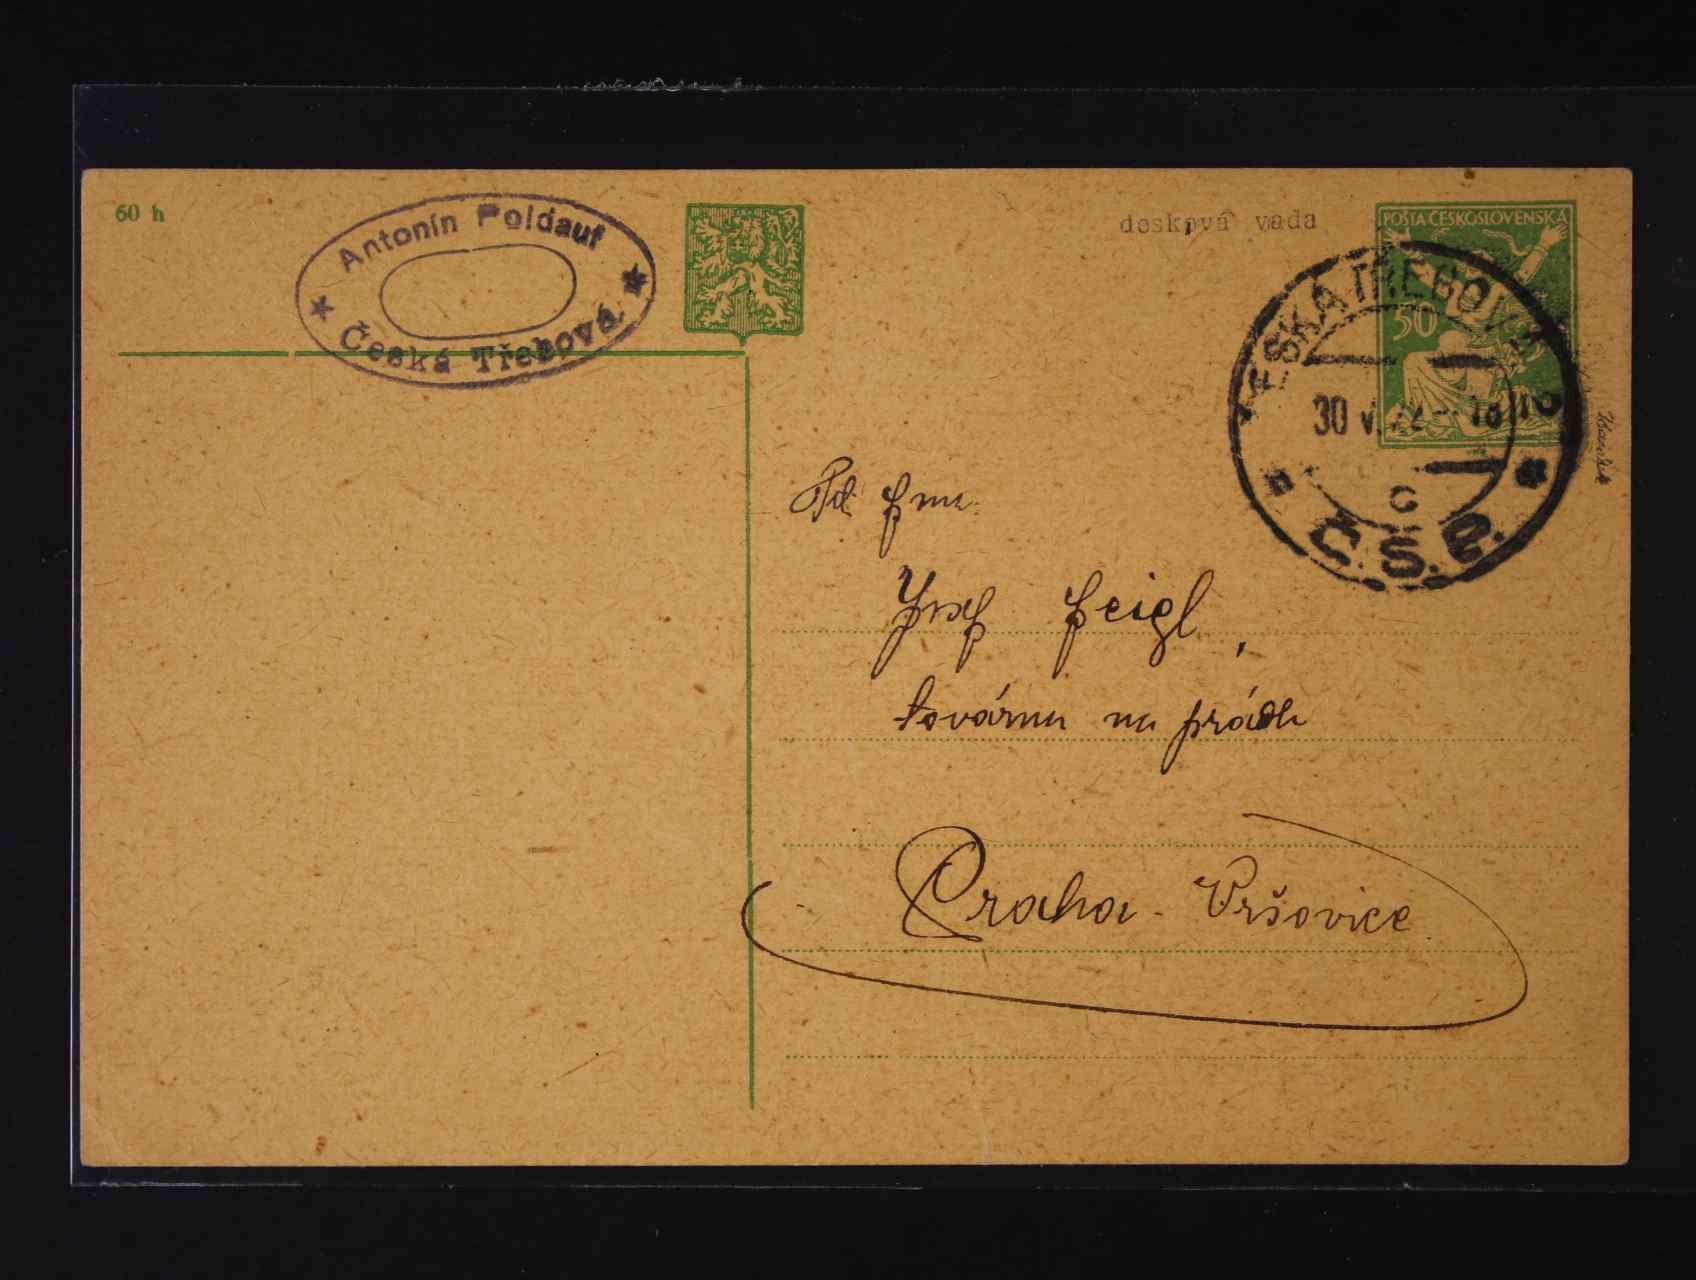 60 h
Antonín Poldauf
Česká Třebová
desková vada
POŠTA ČESKOSLOVENSKÁ
50
ČESKÁ TŘEBOVÁ
30 V.22 - 18
c
Č.S.P.
Josef Feigl,
továrna na prádlo
Praha - Vršovice